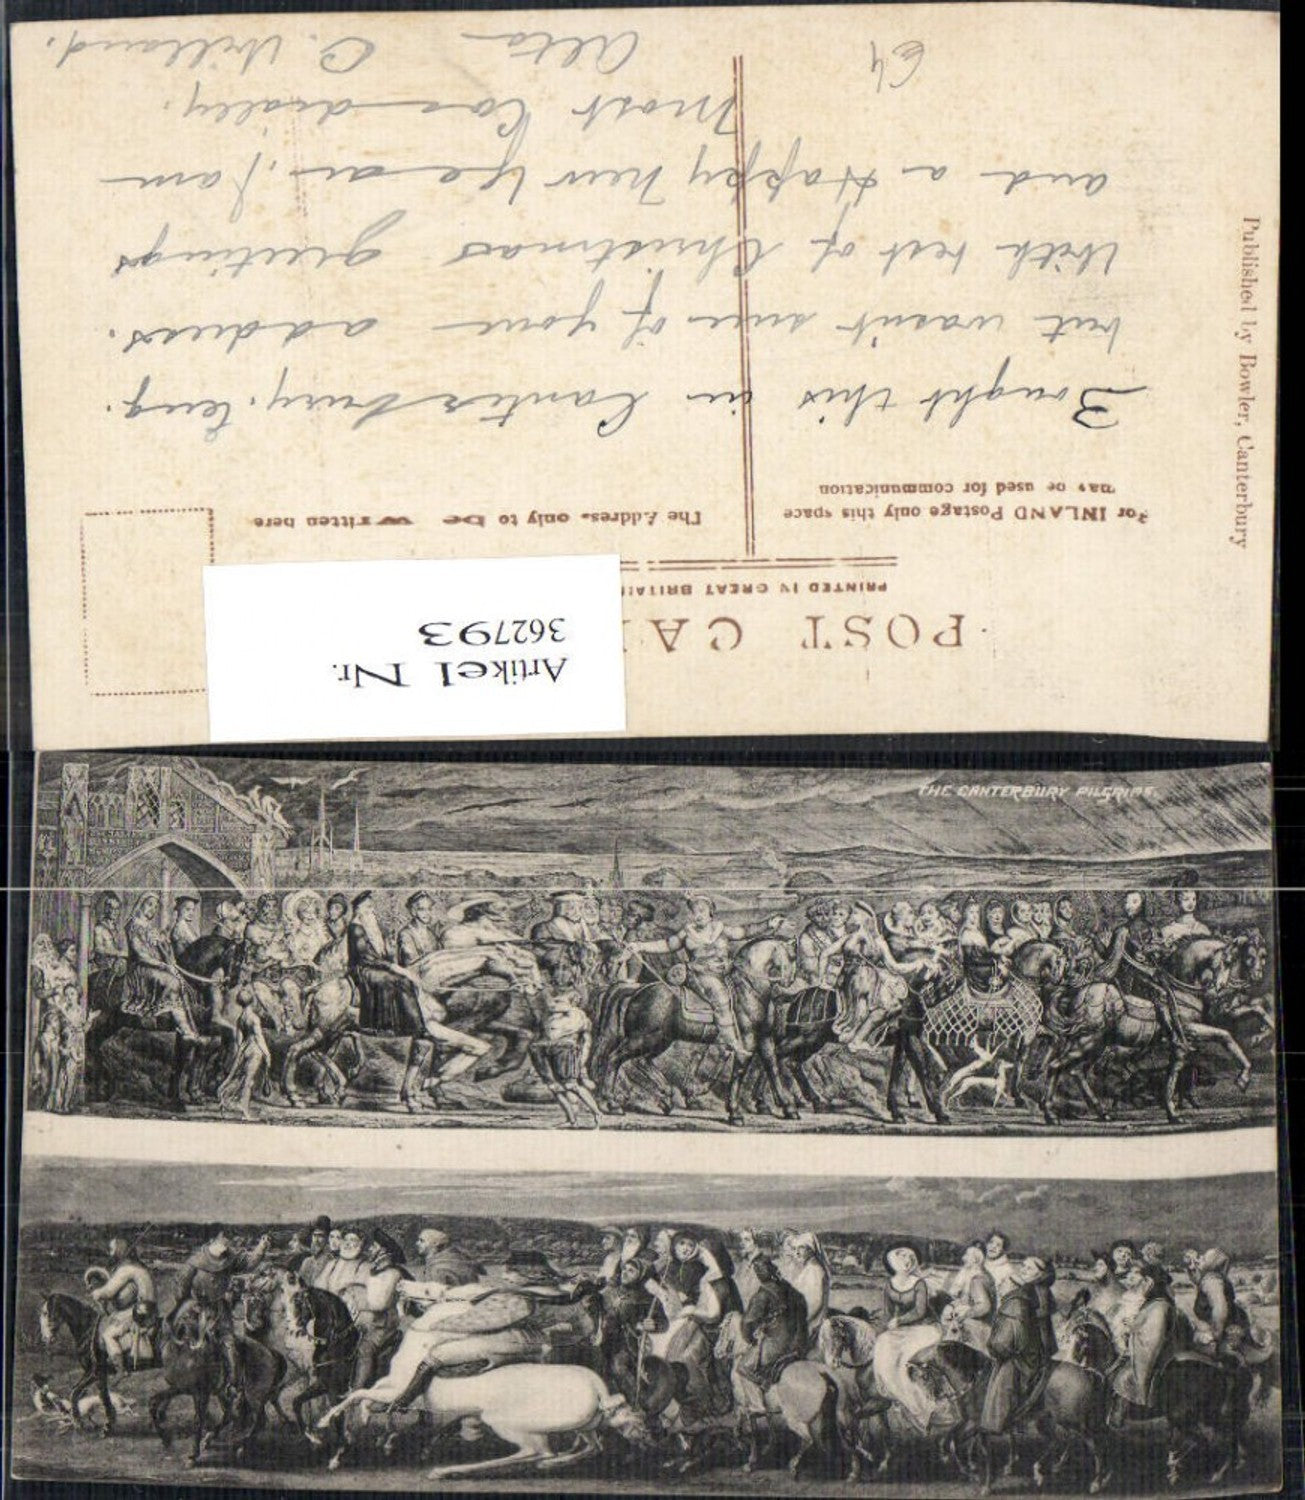 POST CA
PRINTED IN GREAT BRITAIN
For INLAND Postage only this space
may be used for communication
The Address only to be written here
Bought this in Canterbury, Eng.
but wasn't sure of your address.
With best of Christmas greetings
and a Happy New Year, I am
Most Cordially,
Alta C. Willand.
E4
Published by Bowler, Canterbury
Artikel Nr.
362793
THE CANTERBURY PILGRIMS.